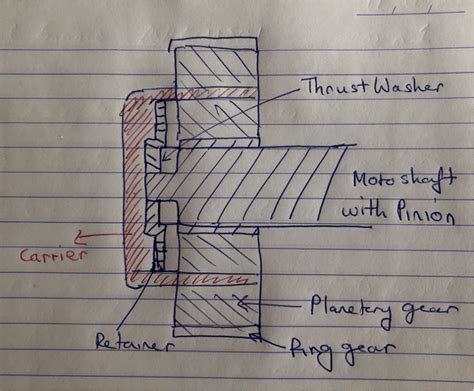 Thrust Washer
Moto shaft
with Pinion
Carrier
Planetery gear
Retainer
Ring gear